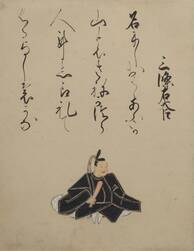 三條右大臣
名にしおはゝあふ坂
山のさねかつら
人にしられて
くるよしもかな